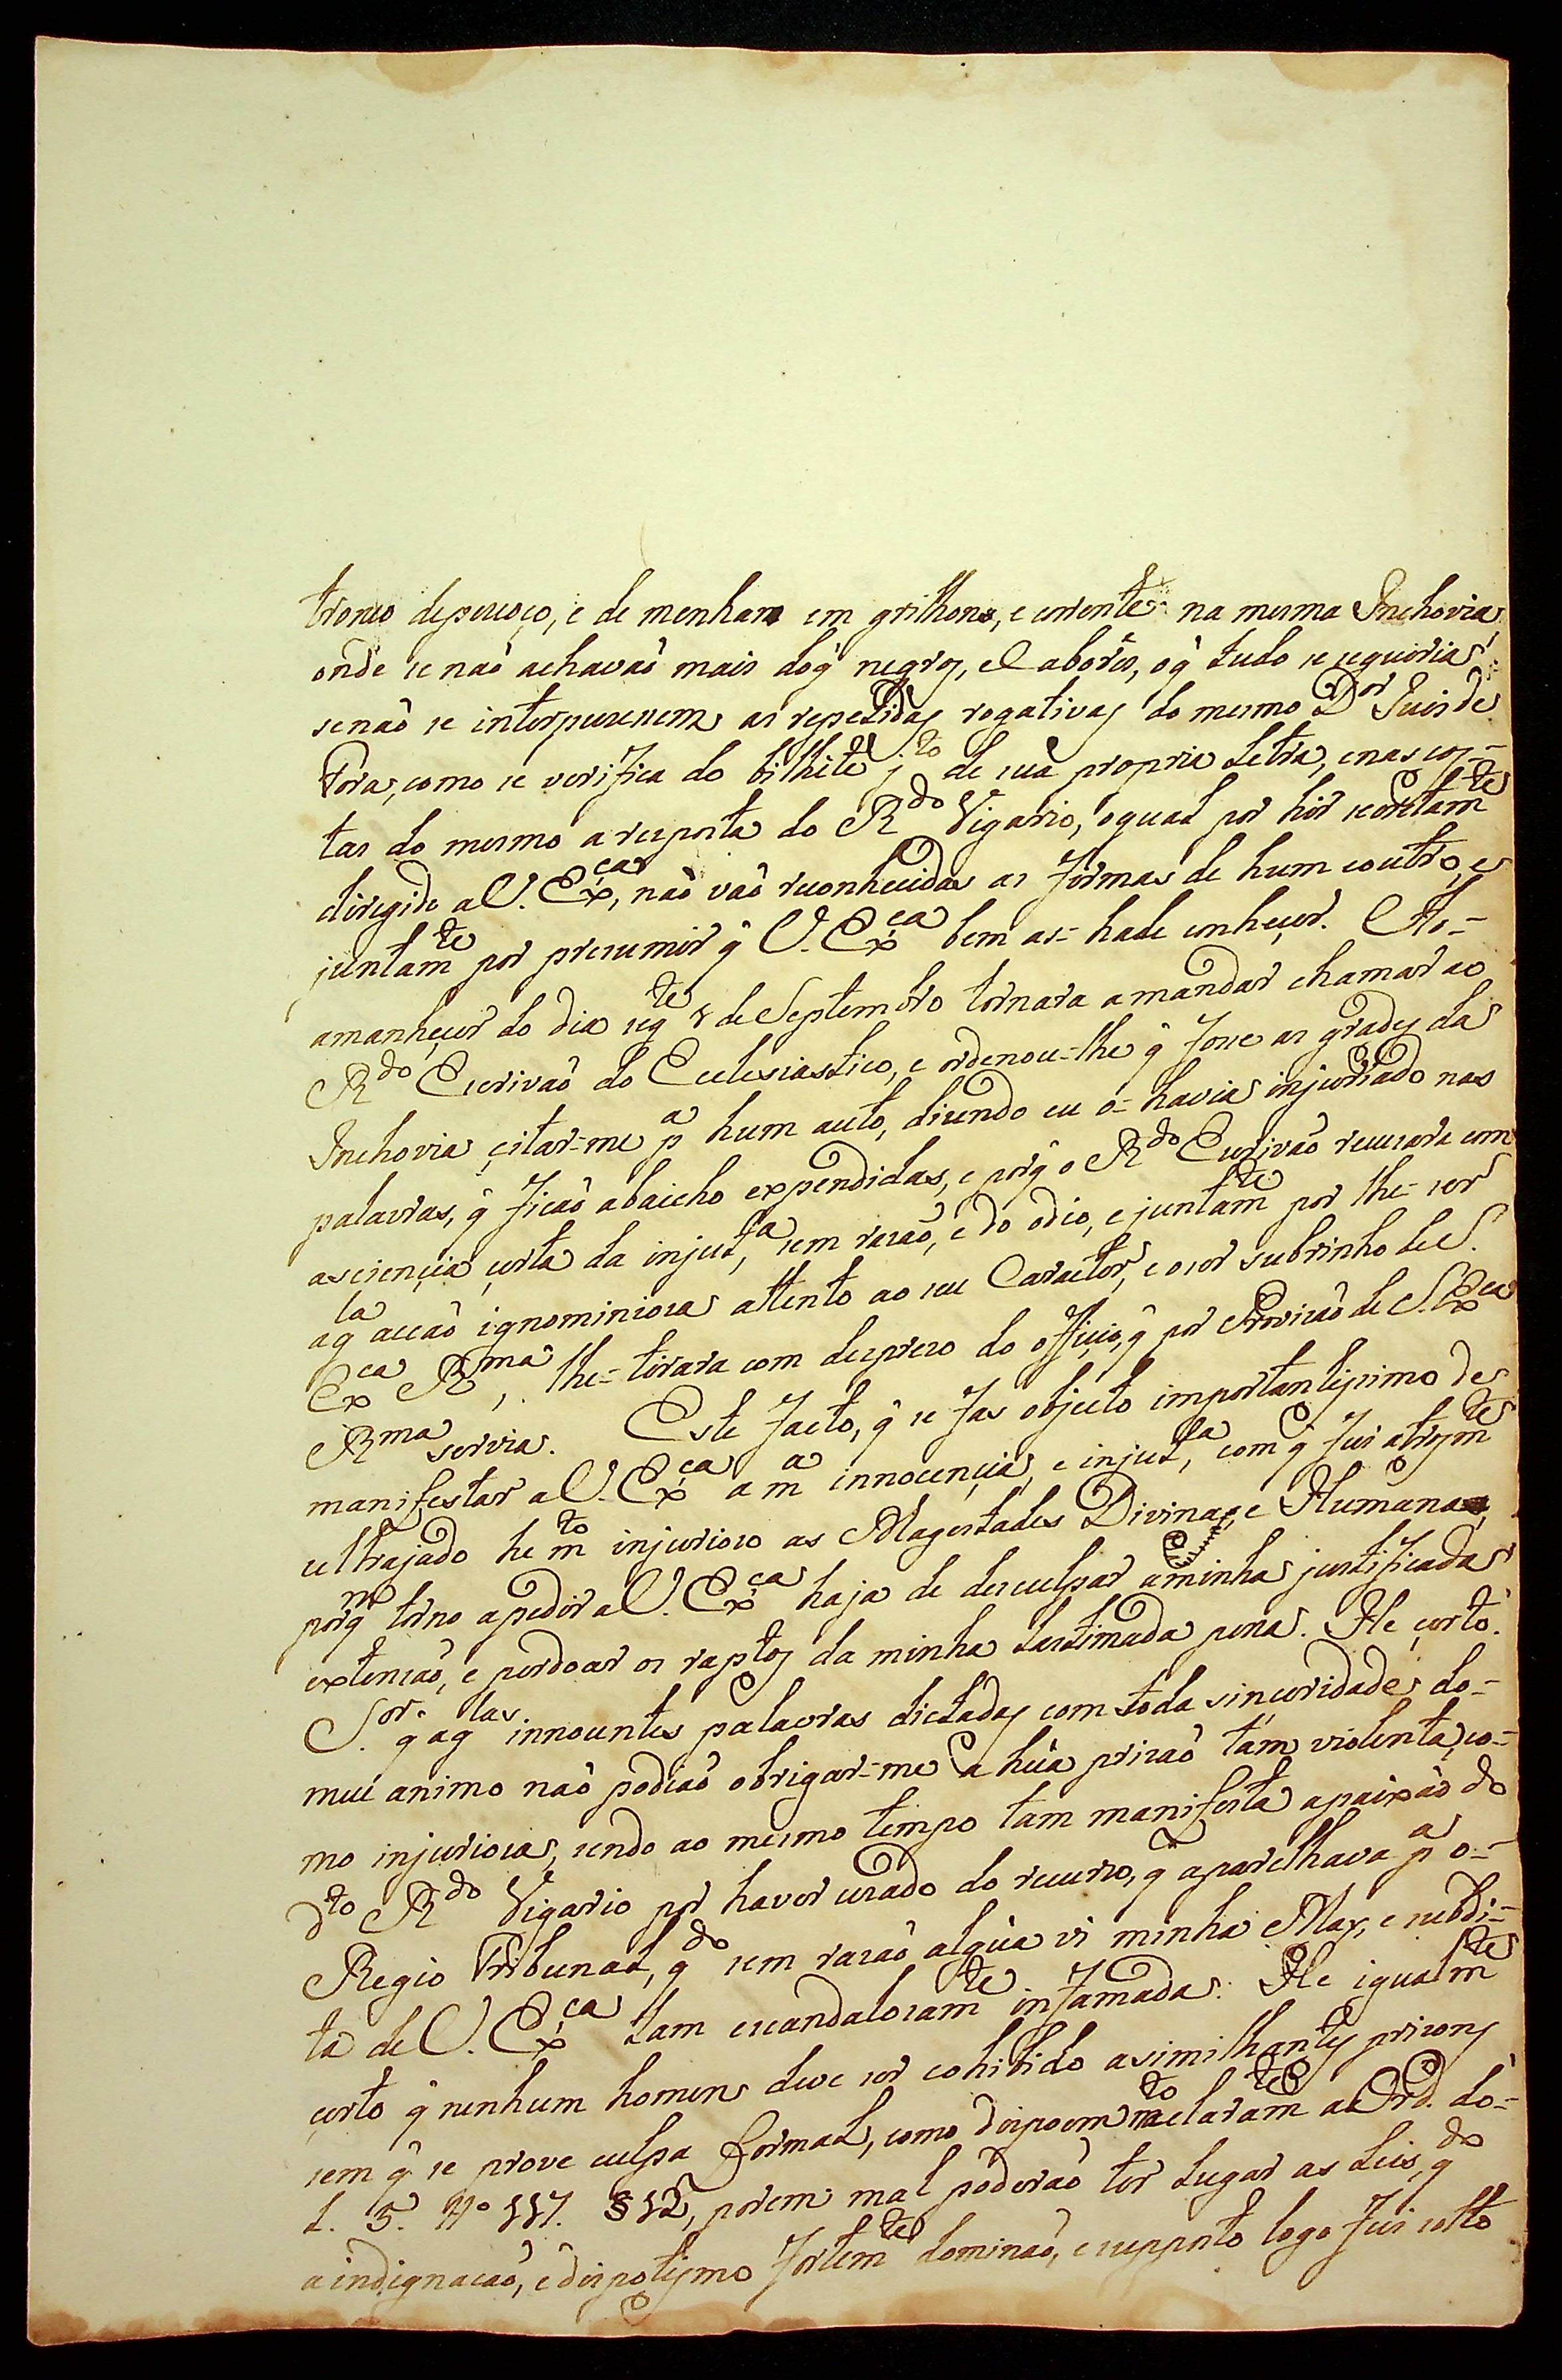 tronco depescoço, e de menham em grilhons, e corrente na mesma Inchovia,
onde se naõ achavaõ mais doq̃ negros, e Cabôres, oq̃ tudo se seguiria
senaõ se interpusesem as repetidas rogativas do mesmo D.or Juis de
Fora, como se verifica do bilhete j.to de sua propria Letra, enascos-
tas do mesmo aresposta do R.do Vigario, oqual por hir secretam.te
dirigido aV. Ex.ca, naõ vaõ reconhecidas as formas de hum eoutro, e
juntam.te por presumir q̃ V. Ex.ca bem as= hade conheçer. Ao-
amanheçer do dia seg.te 8 de Septembro tornara amandar chamar ao
R.do Escrivaõ do Ecclesiastico, e ordenou-lhe q̃ fosse as grades da
Inchovia çitar-me p.a hum auto, disendo eu o= havia injuriado nas
palavras, q̃ ficaõ abaicho expendidas, e porq̃ o R.do Escrivaõ recusara com
asciençia çerta da injust.a, sem rasaõ, e do odio, e juntam.te por lhe= ser
aq.la acçaõ ignominiosa attento ao seu Caracter, e oser subrinho deS.
Ex.ca R.ma, lhe= tirara com despreso do offiçio, q̃ por Provisaõ de S. Ex.ca
R.ma servia. Este facto, q̃ se fas objecto importantissimo de
manifestar aV. Ex.ca a m.a innocençia, e injust.a, com q̃ fui atrosm.te
ultrajado he m.to injurioso as Magestades Divina, e Humana,
porq̃ m.o torno apedir aV. Ex.ca haja de desculpar aminha justificada
extensaõ, e perdoar os raptos da minha Lastimada pena. He çerto
S.or q̃ aq.las innocentes palavras dictadas com toda sinçeridade do-
meu animo naõ podiaõ obrigar-me a hũa prisaõ tam violenta, co-
mo injuriosa, sendo ao mesmo tempo tam manifesta apaixaõ do
d.to R.do Vigario por haver usado do recurso, q̃ aparelhava p.a o-
Regio Tribunal, q.do sem rasaõ algũa vi minha May, e subdi-
ta deV. Ex.ca tam escandalosam.te infamada. He igualm.te
çerto q̃ nenhum homem deve ser cohibido asimilhantes prisons
sem q̃ se prove culpa formal, como dispoem m.to claram.te aOrd. do-
L. 5. tt.o 117. § 12, porem mal poderaõ ter Lugar as Leis, q.do
aindignacaõ, e despotismo fortem.te dominaõ, esupposto logo fui solto